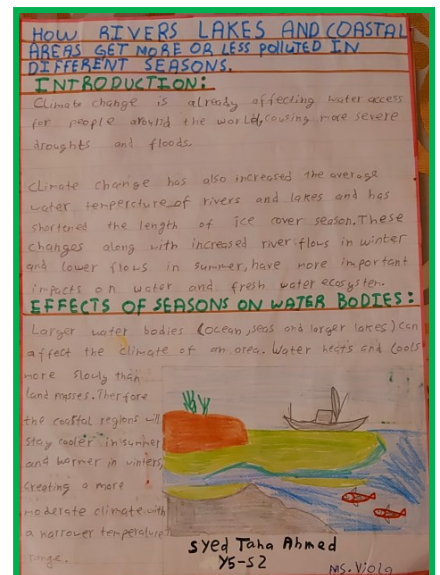 HOW RIVERS LAKES AND COASTAL
AREAS GET MORE OR LESS POLLUTED IN
DIFFERENT SEASONS.
INTRODUCTION:
Climate change is already affecting water access
for people around the world, causing more severe
droughts and floods.
Climate change has also increased the average
water temperature of rivers and lakes and has
shortened the length of ice cover season. These
changes along with increased river flows in winter
and lower flows in summer, have more important
impacts on water and fresh water ecosystem.
EFFECTS OF SEASONS ON WATER BODIES:
Larger water bodies (ocean, seas and larger lakes) can
affect the climate of an area. Water heats and cools
more slowly than
land masses. Therfore
the coastal regions will
stay cooler in summer
and warmer in winters,
creating a more
moderate climate with
a narrower temperature
range.
Syed Taha Ahmed
Y5-S2
MS. Viola